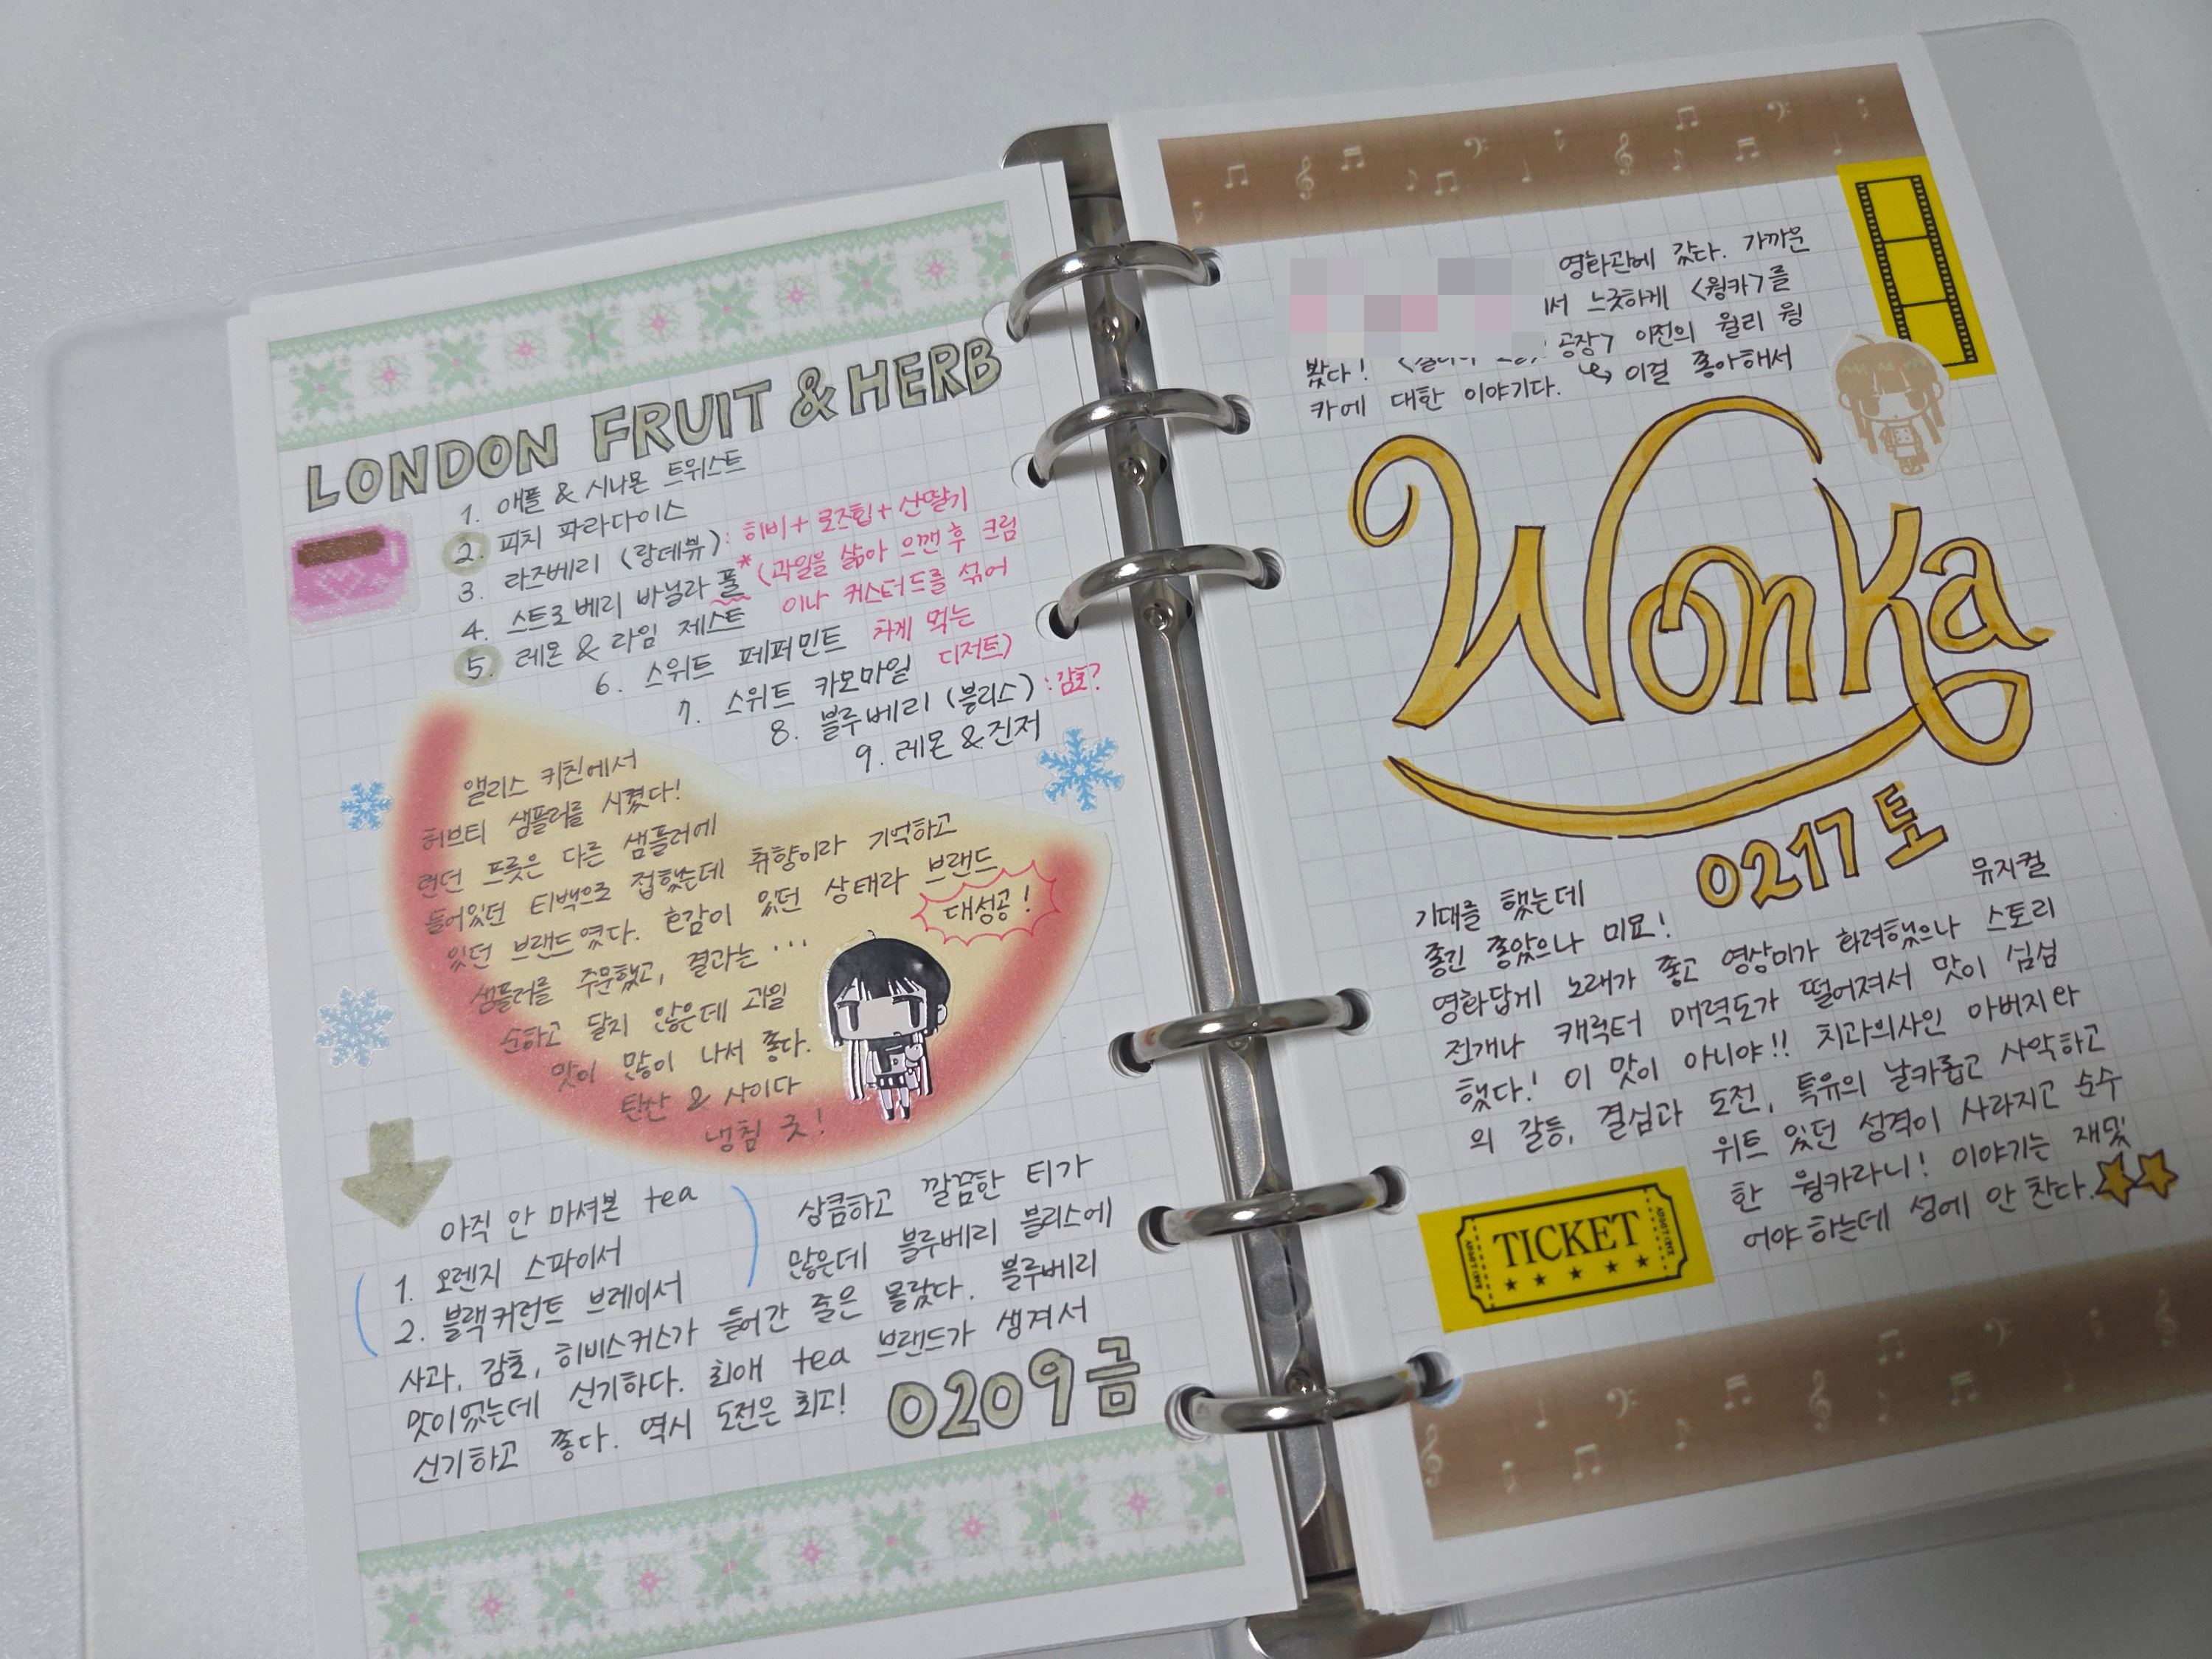 LONDON FRUIT & HERB
1. 애플 & 시나몬 트위스트
2. 피치 파라다이스
3. 라즈베리 (랑데뷰) : 히비 + 로즈힙 + 산딸기
4. 스트로베리 바닐라 풀* (과일을 삶아 으깬 후 크림
이나 커스터드를 섞어
차게 먹는
디저트)
5. 레몬 & 라임 제스트
6. 스위트 페퍼민트
7. 스위트 카모마일
8. 블루베리 (블리스) : 감초?
9. 레몬 & 진저
앨리스 키친에서
허브티 샘플러를 시켰다!
런던 프룻은 다른 샘플러에
들어있던 티백으로 접했는데 취향이라 기억하고
있던 브랜드였다. 호감이 있던 상태라 브랜드
샘플러를 주문했고, 결과는 ...
대성공!
순하고 달지 않은데 과일
맛이 많이 나서 좋다.
탄산 & 사이다
냉침 굿!
아직 안 마셔본 tea
1. 오렌지 스파이서
2. 블랙커런트 브레이서
상큼하고 깔끔한 티가
많은데 블루베리 블리스에
사과, 감초, 히비스커스가 들어간 줄은 몰랐다. 블루베리
맛이었는데 신기하다. 최애 tea 브랜드가 생겨서
신기하고 좋다. 역시 도전은 최고!
0209 금
영화관에 갔다. 가까운
서 느긋하게 <웡카>를
봤다! 공장> 이전의 윌리 웡
카에 대한 이야기다. 이걸 좋아해서
Wonka
0217 토
기대를 했는데
좋긴 좋았으나 미묘! 뮤지컬
영화답게 노래가 좋고 영상미가 화려했으나 스토리
전개나 캐릭터 매력도가 떨어져서 맛이 심심
했다! 이 맛이 아니야!! 치과의사인 아버지와
의 갈등, 결심과 도전, 특유의 날카롭고 사악하고
위트 있던 성격이 사라지고 순수
한 웡카라니! 이야기는 재밌
어야 하는데 성에 안 찬다.
TICKET